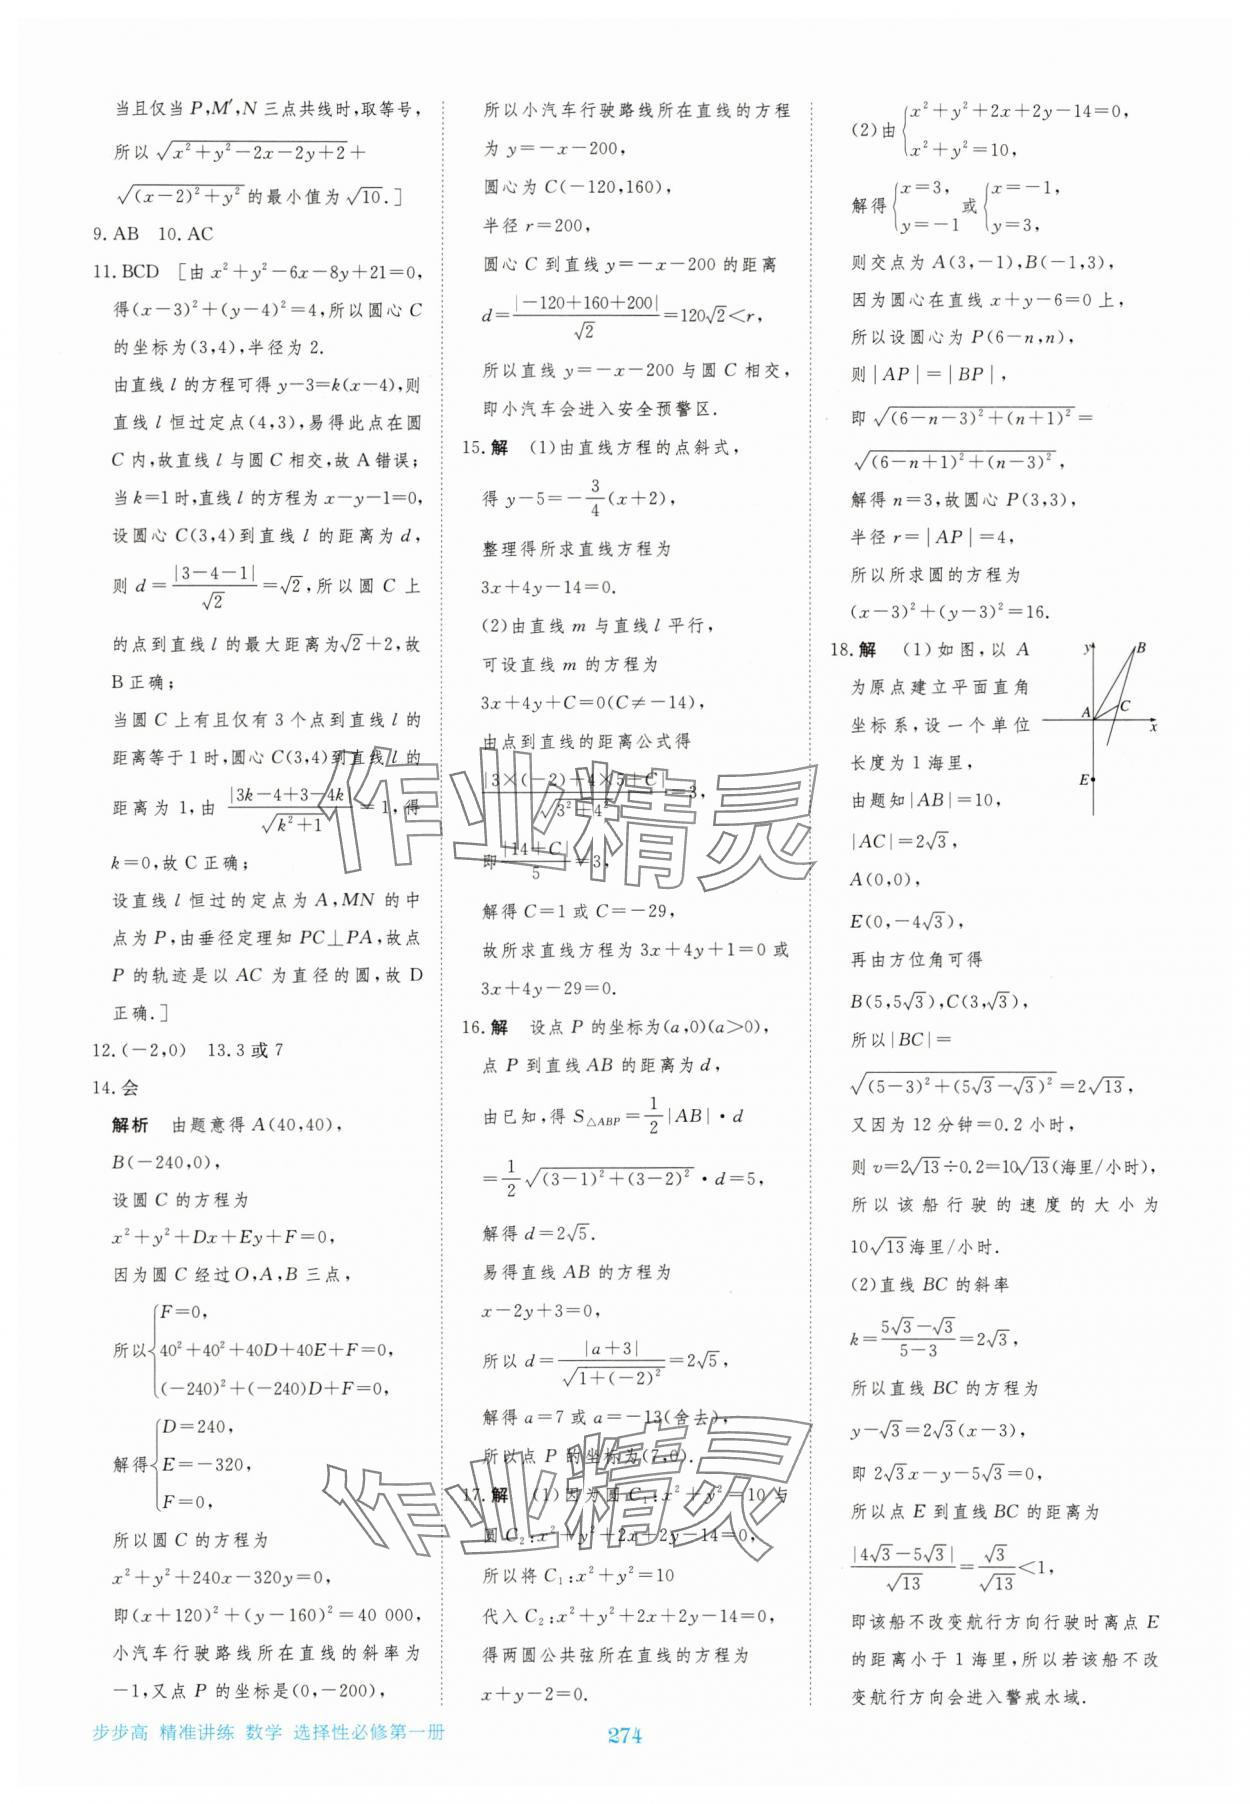 当且仅当 P,M′,N 三点共线时,取等号,
所以 √(x²+y²−2x−2y+2)+
√((x−2)²+y²) 的最小值为 √10.]
9.AB 10.AC
11.BCD [由 x²+y²−6x−8y+21=0,
得(x−3)²+(y−4)²=4,所以圆心 C
的坐标为(3,4),半径为 2.
由直线 l 的方程可得 y−3=k(x−4),则
直线 l 恒过定点(4,3),易得此点在圆
C 内,故直线 l 与圆 C 相交,故 A 错误;
当 k=1 时,直线 l 的方程为 x−y−1=0,
设圆心 C(3,4)到直线 l 的距离为 d,
则 d=|3−4−1|/√2=√2,所以圆 C 上
的点到直线 l 的最大距离为√2+2,故
B 正确;
当圆 C 上有且仅有 3 个点到直线 l 的
距离等于 1 时,圆心 C(3,4)到直线 l 的
距离为 1,由 |3k−4+3−4k|/√(k²+1)=1,得
k=0,故 C 正确;
设直线 l 恒过的定点为 A,MN 的中
点为 P,由垂径定理知 PC⊥PA,故点
P 的轨迹是以 AC 为直径的圆,故 D
正确.]
12.(−2,0) 13.3 或 7
14.会
解析 由题意得 A(40,40),
B(−240,0),
设圆 C 的方程为
x²+y²+Dx+Ey+F=0,
因为圆 C 经过 O,A,B 三点,
所以{F=0,
40²+40²+40D+40E+F=0,
(−240)²+(−240)D+F=0,
解得{D=240,
E=−320,
F=0,
所以圆 C 的方程为
x²+y²+240x−320y=0,
即(x+120)²+(y−160)²=40 000,
小汽车行驶路线所在直线的斜率为
−1,又点 P 的坐标是(0,−200),
所以小汽车行驶路线所在直线的方程
为 y=−x−200,
圆心为 C(−120,160),
半径 r=200,
圆心 C 到直线 y=−x−200 的距离
d=|−120+160+200|/√2=120√2<r,
所以直线 y=−x−200 与圆 C 相交,
即小汽车会进入安全预警区.
15.解 (1)由直线方程的点斜式,
得 y−5=−3/4(x+2),
整理得所求直线方程为
3x+4y−14=0.
(2)由直线 m 与直线 l 平行,
可设直线 m 的方程为
3x+4y+C=0(C≠−14),
由点到直线的距离公式得
|3×(−2)+4×5+C|/√(3²+4²)=3,
即|14+C|/5=3,
解得 C=1 或 C=−29,
故所求直线方程为 3x+4y+1=0 或
3x+4y−29=0.
16.解 设点 P 的坐标为(a,0)(a>0),
点 P 到直线 AB 的距离为 d,
由已知,得 S△ABP=1/2|AB|·d
=1/2√((3−1)²+(3−2)²)·d=5,
解得 d=2√5.
易得直线 AB 的方程为
x−2y+3=0,
所以 d=|a+3|/√(1+(−2)²)=2√5,
解得 a=7 或 a=−13(舍去),
所以点 P 的坐标为(7,0).
17.解 (1)因为圆 C₁:x²+y²=10 与
圆 C₂:x²+y²+2x+2y−14=0,
所以将 C₁:x²+y²=10
代入 C₂:x²+y²+2x+2y−14=0,
得两圆公共弦所在直线的方程为
x+y−2=0.
(2)由{x²+y²+2x+2y−14=0,
x²+y²=10,
解得{x=3,
y=−1 或{x=−1,
y=3,
则交点为 A(3,−1),B(−1,3),
因为圆心在直线 x+y−6=0 上,
所以设圆心为 P(6−n,n),
则|AP|=|BP|,
即 √((6−n−3)²+(n+1)²)=
√((6−n+1)²+(n−3)²),
解得 n=3,故圆心 P(3,3),
半径 r=|AP|=4,
所以所求圆的方程为
(x−3)²+(y−3)²=16.
18.解 (1)如图,以 A
为原点建立平面直角
坐标系,设一个单位
长度为 1 海里,
y
B
A
C
x
E
由题知|AB|=10,
|AC|=2√3,
A(0,0),
E(0,−4√3),
再由方位角可得
B(5,5√3),C(3,√3),
所以|BC|=
√((5−3)²+(5√3−√3)²)=2√13,
又因为 12 分钟=0.2 小时,
则 v=2√13÷0.2=10√13(海里/小时),
所以该船行驶的速度的大小为
10√13海里/小时.
(2)直线 BC 的斜率
k=(5√3−√3)/(5−3)=2√3,
所以直线 BC 的方程为
y−√3=2√3(x−3),
即 2√3x−y−5√3=0,
所以点 E 到直线 BC 的距离为
|4√3−5√3|/√13=√3/√13<1,
即该船不改变航行方向行驶时离点 E
的距离小于 1 海里,所以若该船不改
变航行方向会进入警戒水域.
作业精灵
作业精灵
步步高 精准讲练 数学 选择性必修第一册
274